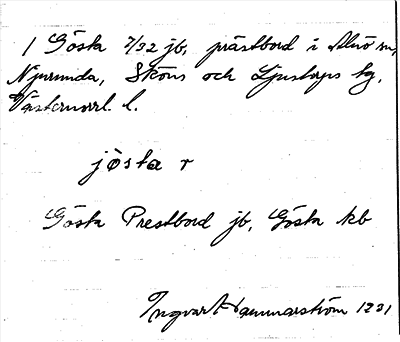 1 Gösta 7/32 jb, prästbord i Alnö sn,
Njurunda, Sköns och Ljustorps tg,
Västernorrl. l.
jösta r
Gösta Prestbord jb, Gösta kb
Ingvar Hammarström 1931